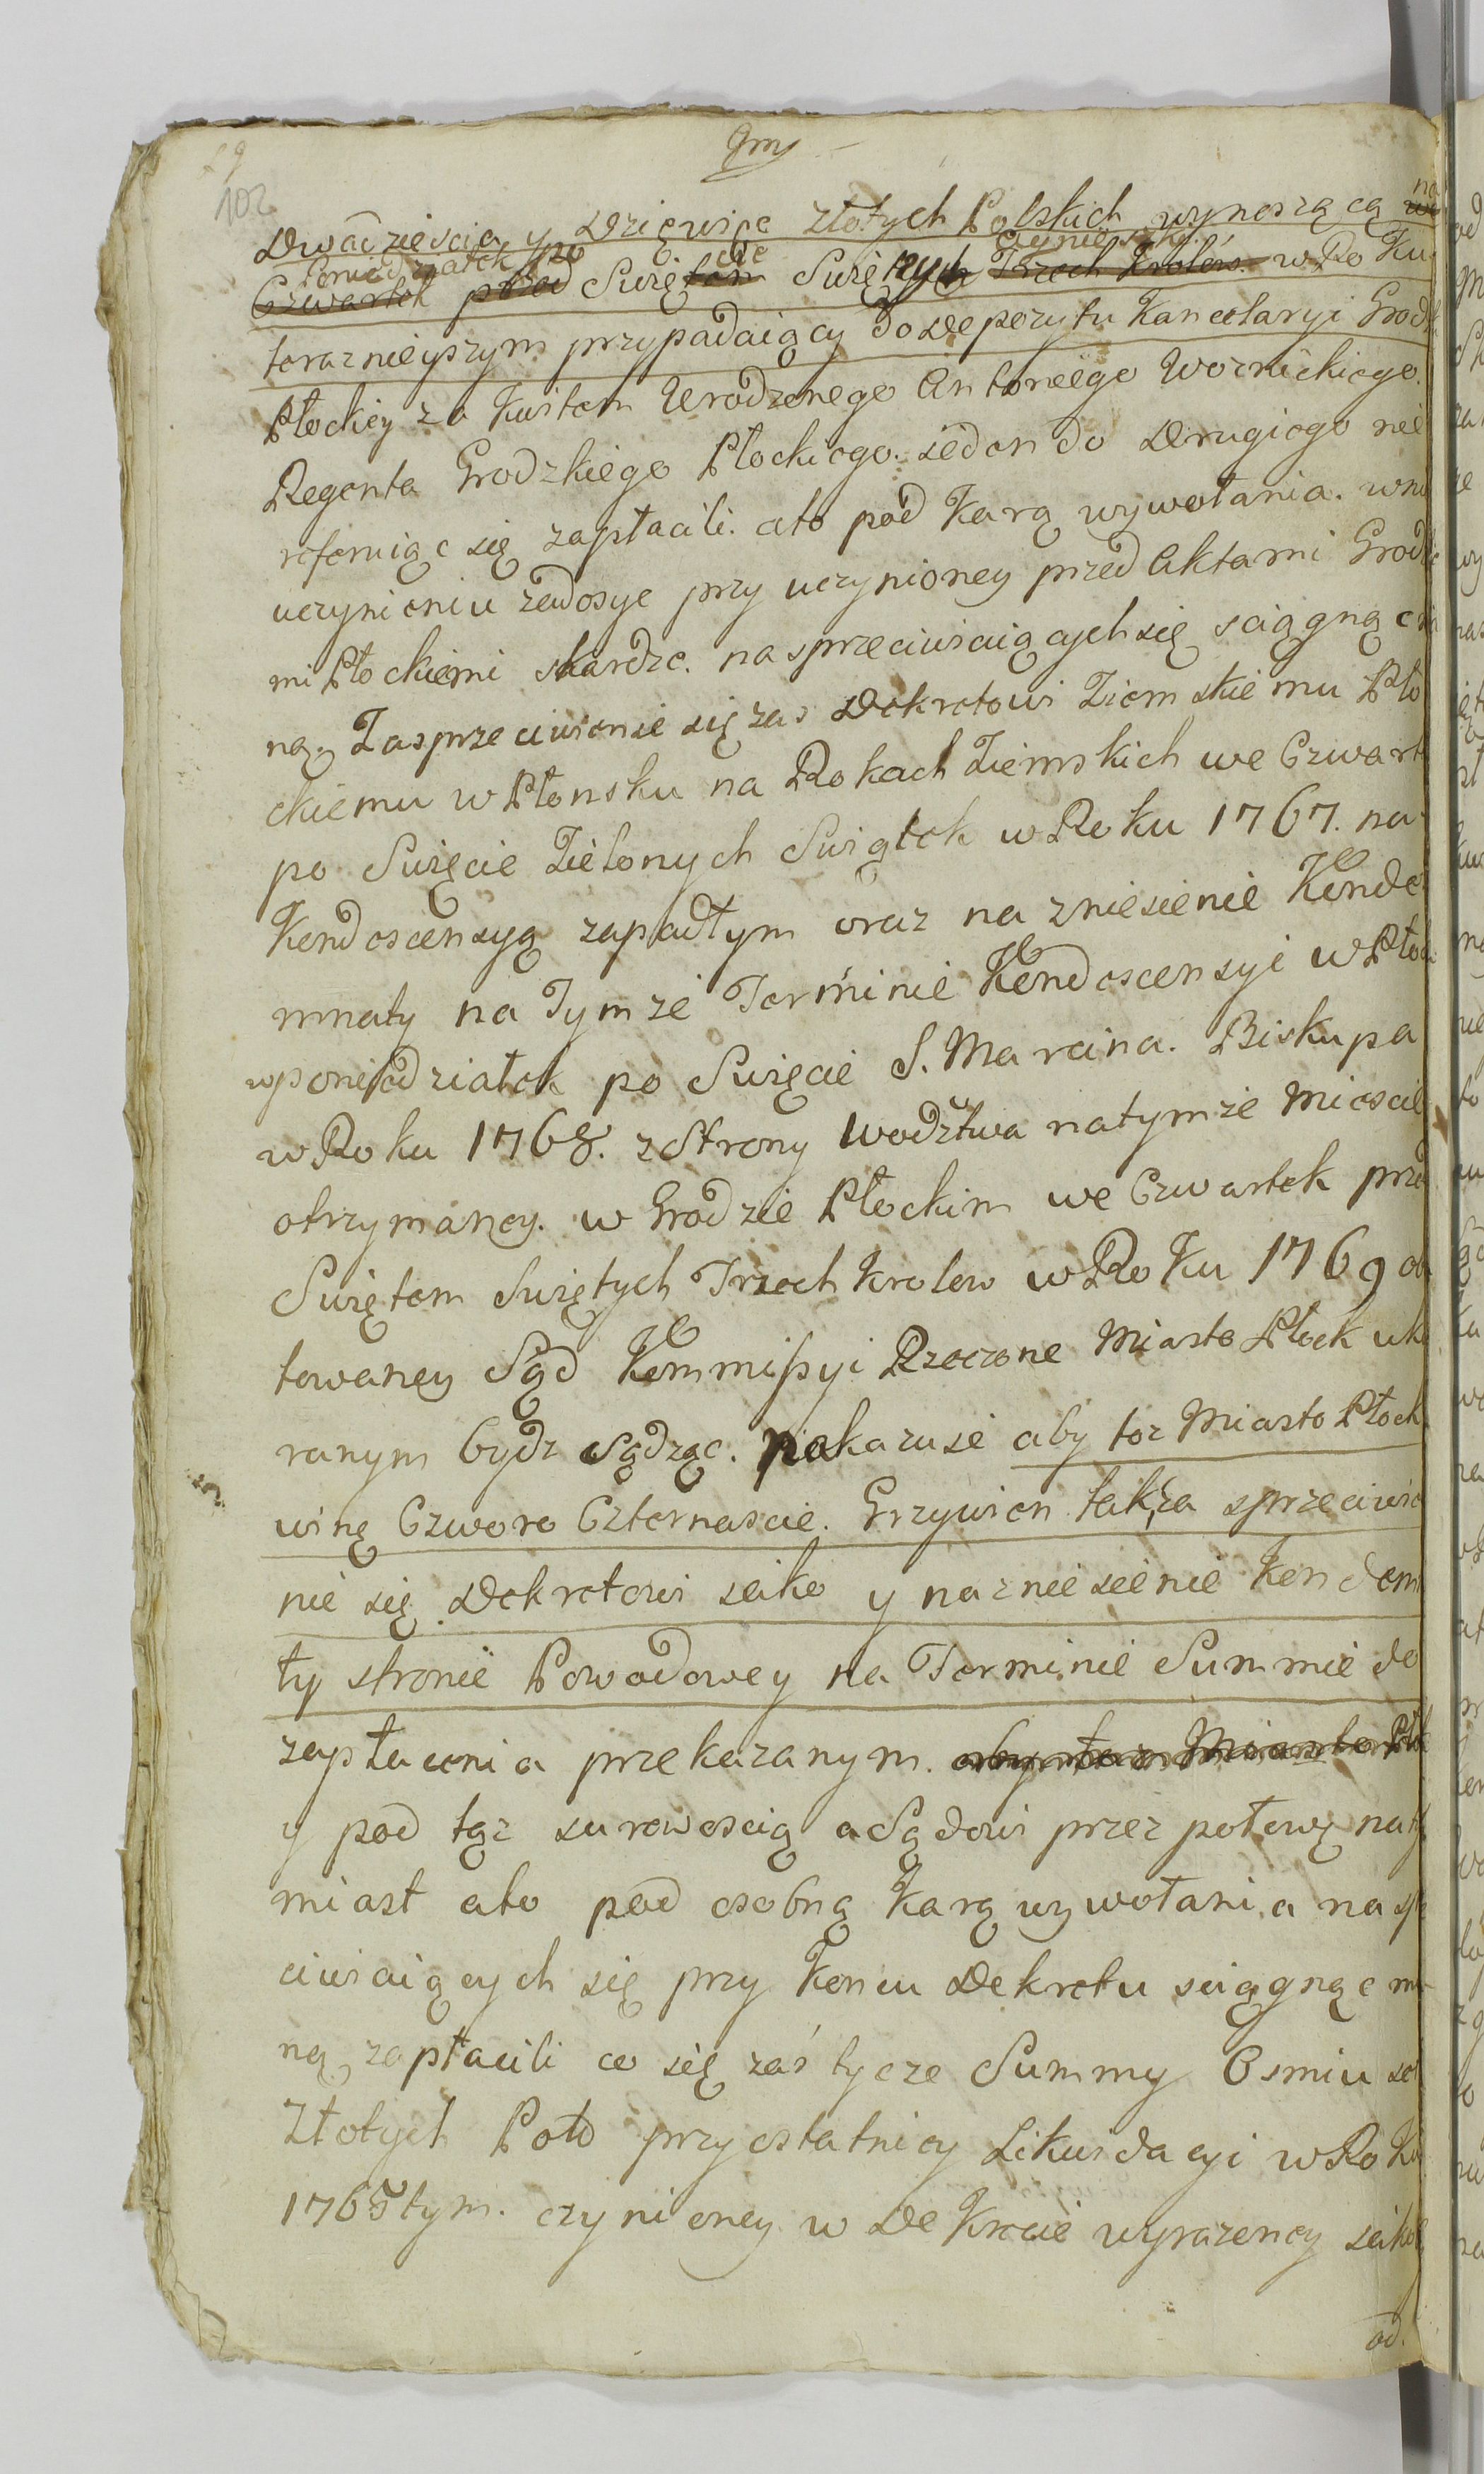 102
Dwadziescia y Dziewięc złotych Polskich wynoszącą na
Poniedziałek po
Czwartek przed Swiętem Swiętych Trzech Krolów w Roku
teraznieyszym przypadaiący do Depozytu Kancelaryi Grodz
Płockiey za Kwitem Urodzonego Antoniego Woznickiego
Regenta Grodzkiego Płockiego. ieden do Drugiego nie
referuiąc się zapłacili. ato pod Karą wywołania. w nie
uczynieniu zadosyc przy uczynioney przed Aktami Grodzkie
mi Płockiemi skardze. na sprzeciwiaiących się sciągnąc się
ną. Zasprzeciwienie się zas Dekretowi Ziemskiemu Pło
ckiemu w Płonsku na Rokach Ziemskich we Czwart
po Swięcie Zielonych Swiątek w Roku 1767. na
Kondescensyą zapadłym oraz na zniesienie Konde
mnaty na Tymze Terminie Kondescensyi w Płoc
w poniedziałek po Swięcie S. Marcina. Biskupa
w Roku 1768. z Strony Wodztwa natymze Miescie
otrzymaney. w Grodzie Płockim we Czwartek przed
Swiętem Swiętych Trzech Krolow w Roku 1769 ob
towaney Sąd Kommissyi Rzeczone Miasto Płock uka
ranym bydz sądząc. nakazuie aby toz Miasto Płock
winę Czworo Czternascie. Grzywien tak za sprzeciwie
nie się Dekretowi iako y na zniesienie Kondemna
ty stronie Powodowey na Terminie Summie do
zapłacenia przekazanym. aby toz Miasto Płock
y pod tąz surowoscią a Sądowi przez połowę naty
miast ato pod osobną Karą wywołania na sprze
ciwiaiących się przy Koncu Dekretu sciągnąc mia
ną zapłacili co się zaś tycze Summy Osmiu set
Złotych Pols przy ostatniey Likwidacyi w Roku
1765tym. czynioney w Dekrecie wyrazoney iako
od.